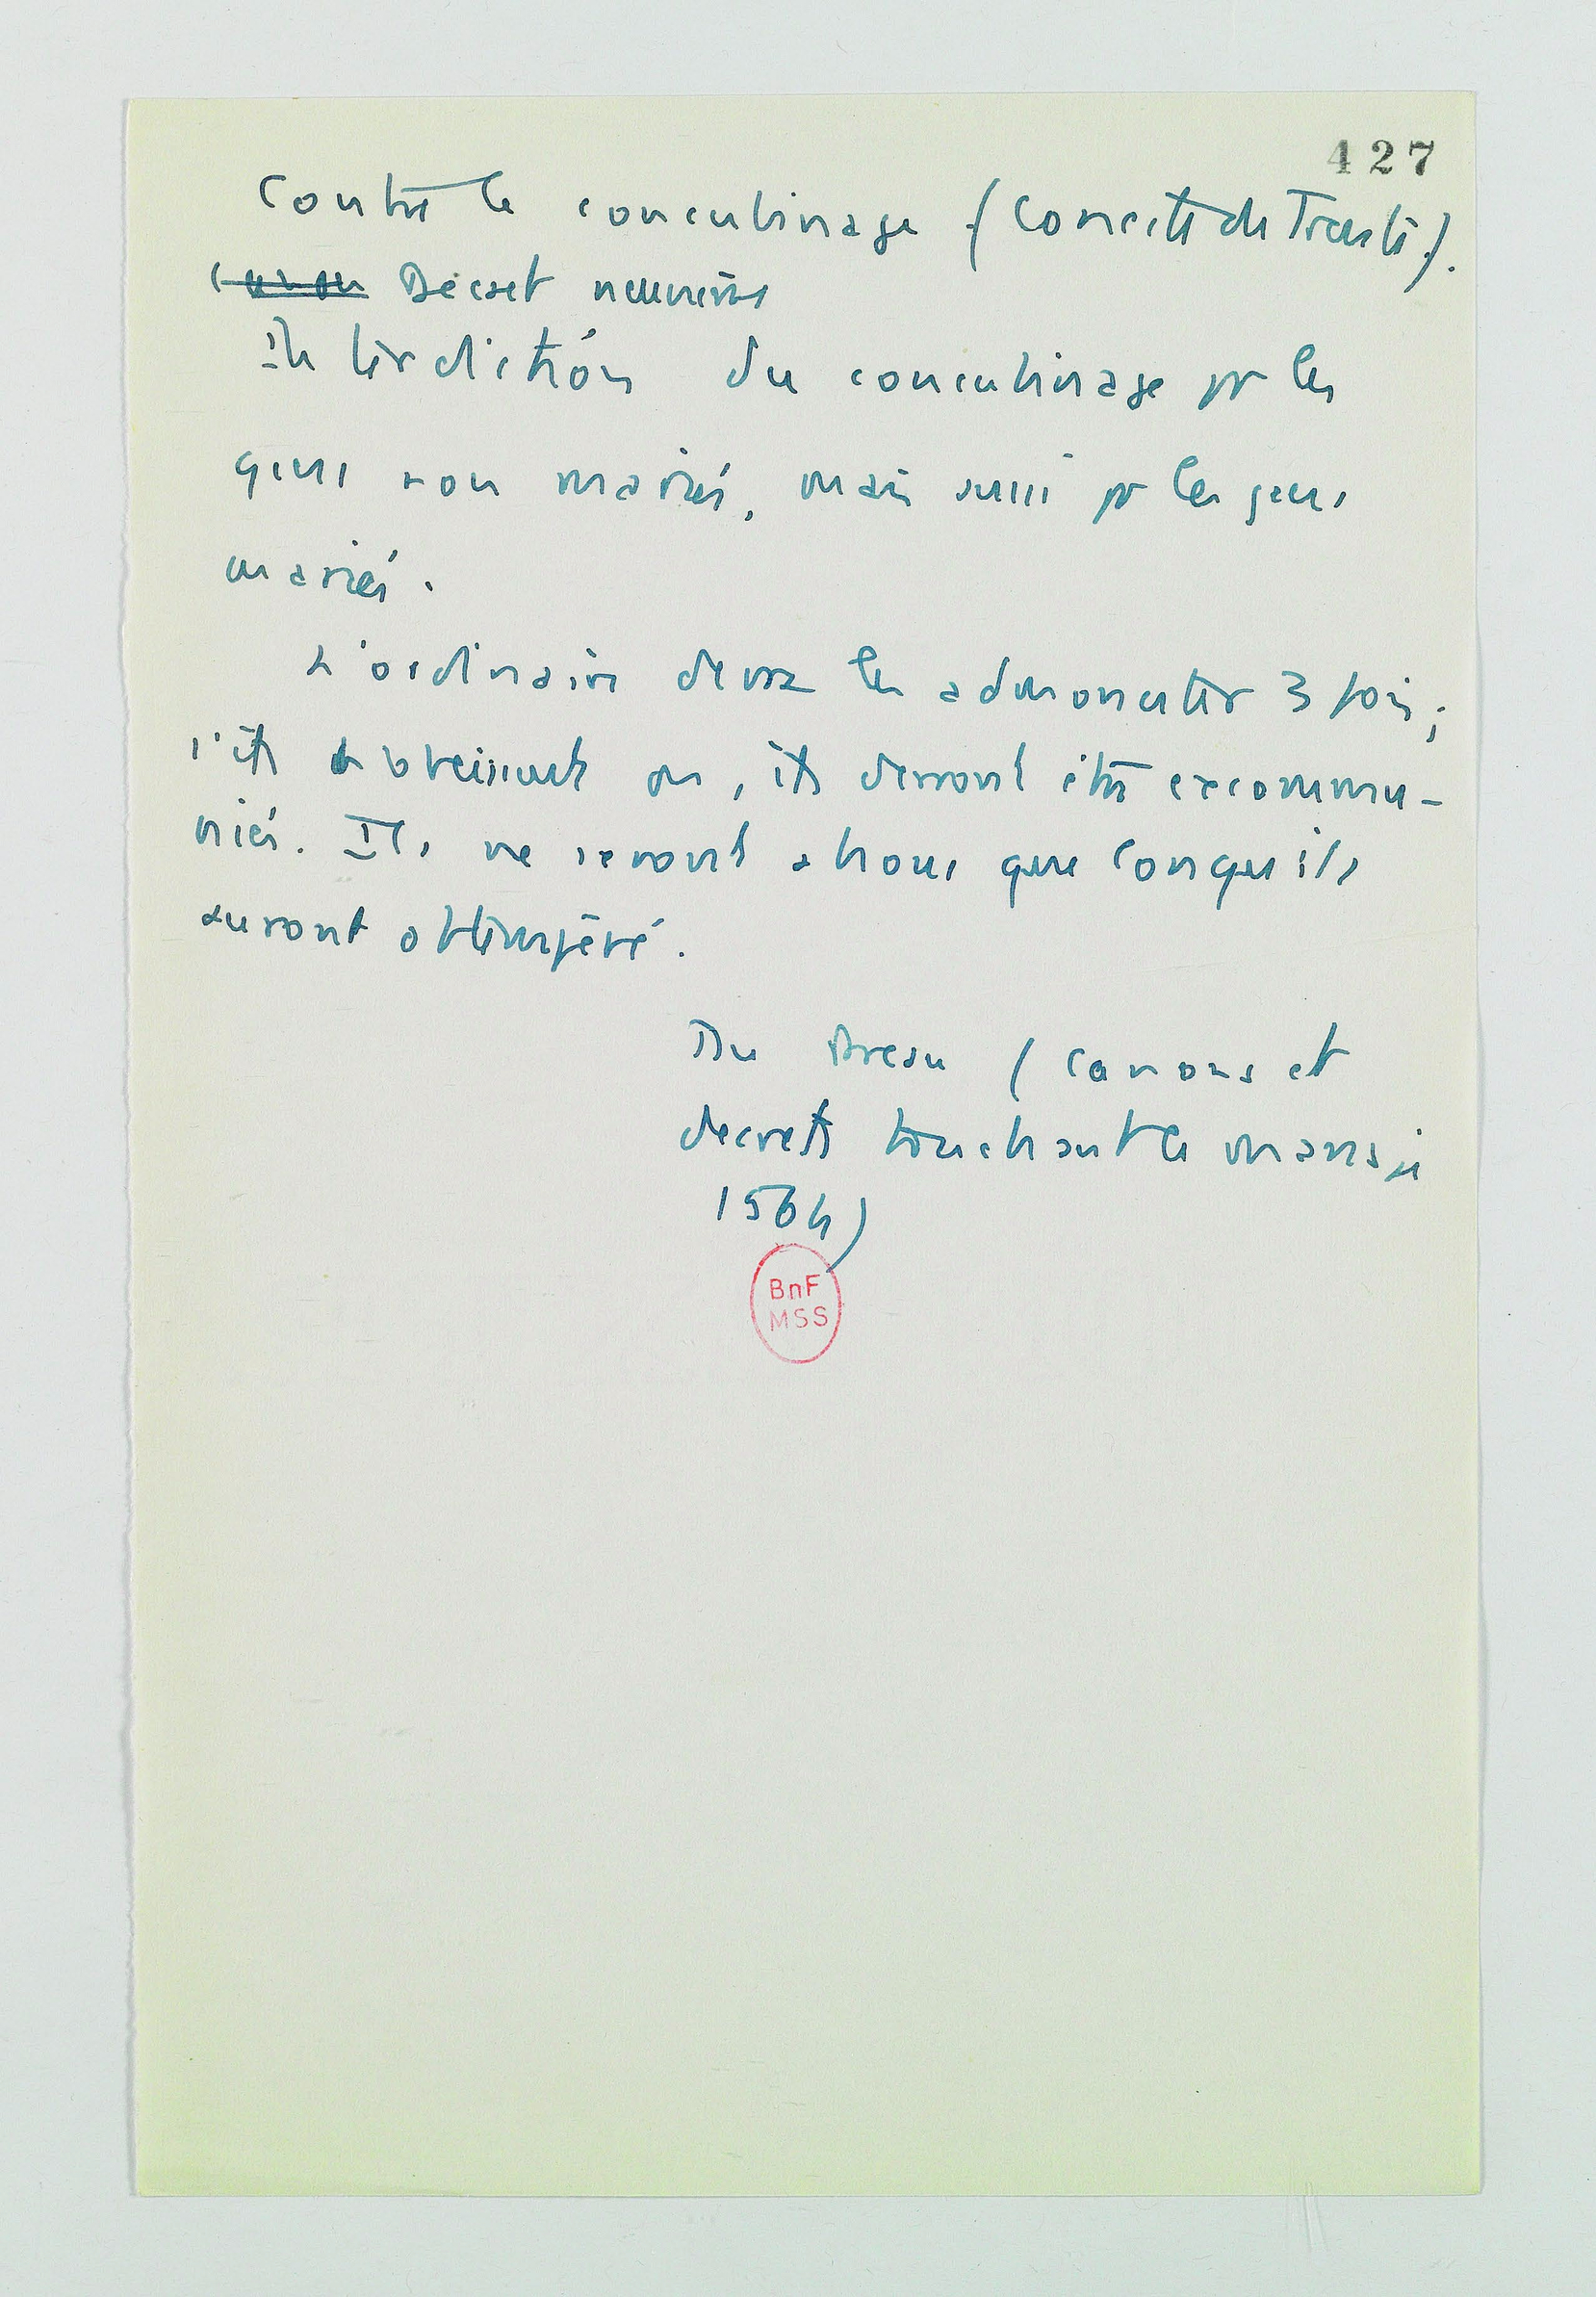 427
Contre le concubinage (Concile de Trente).
canon Décret neuvième
Interdiction du concubinage pr les
gens non mariés, mais aussi pr les gens
mariés.
L'ordinaire devra les admonester 3 fois;
s'ils obéissent pas, ils devront être excommu-
niés. Ils ne seront absous que lorsqu'ils
auront obtempéré.
Du Preau (Canons et
decrets touchant le mariage
1564)
BnF
MSS